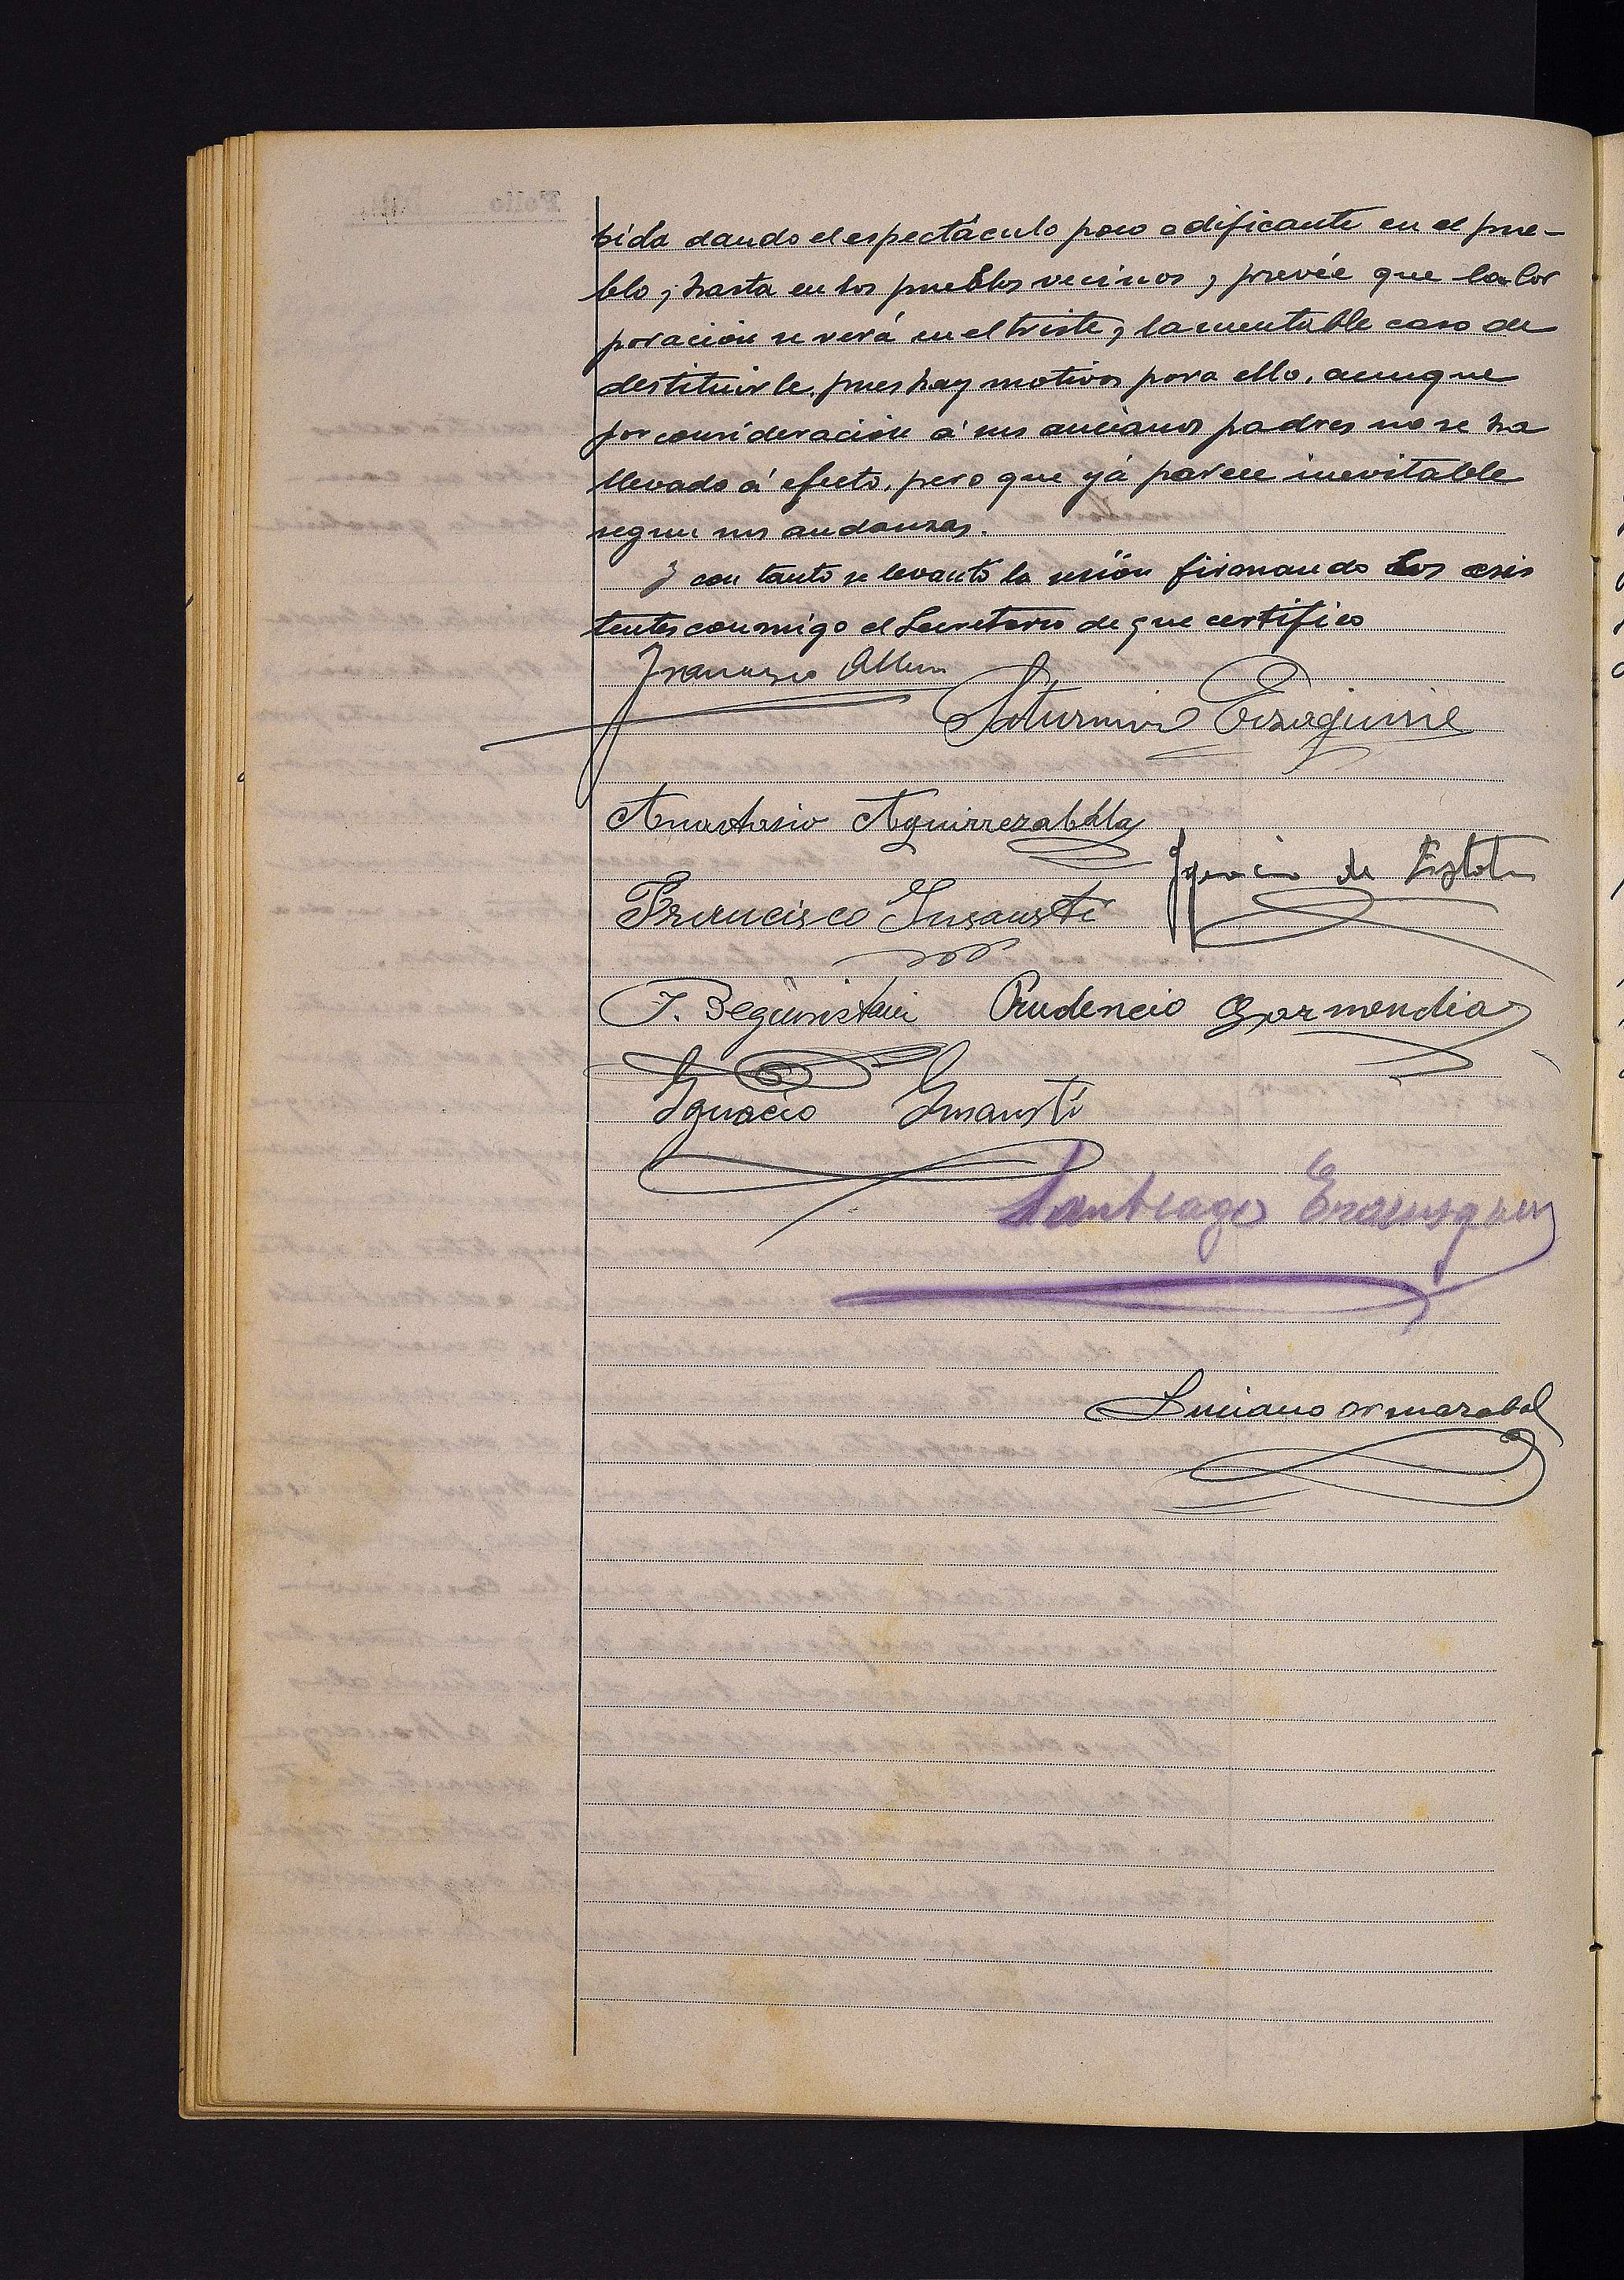 bida dando el espectáculo poco edificante en el pue-
blo y hasta en los pueblos vecinos, y prevée que la Cor
poración se verá en el triste y lamentable caso de
destituirle, pues hay motivos para ello, aunque
por consideración á sus ancianos padres no se ha
llevado á efecto, pero que yá parece inevitable
segun sus andanzas.
Y con tanto se levantó la sesión firmando los asis
tentes conmigo el Secretario de que certifico
Francisco
Saturnino Eizaguirre
Anastasio Aguirrezabala
Ignacio de
Francisco Insausti
J. Beguiristain Prudencio Garmendia
Ignacio Insausti
Santiago Erausquin
Luciano Ormazabal